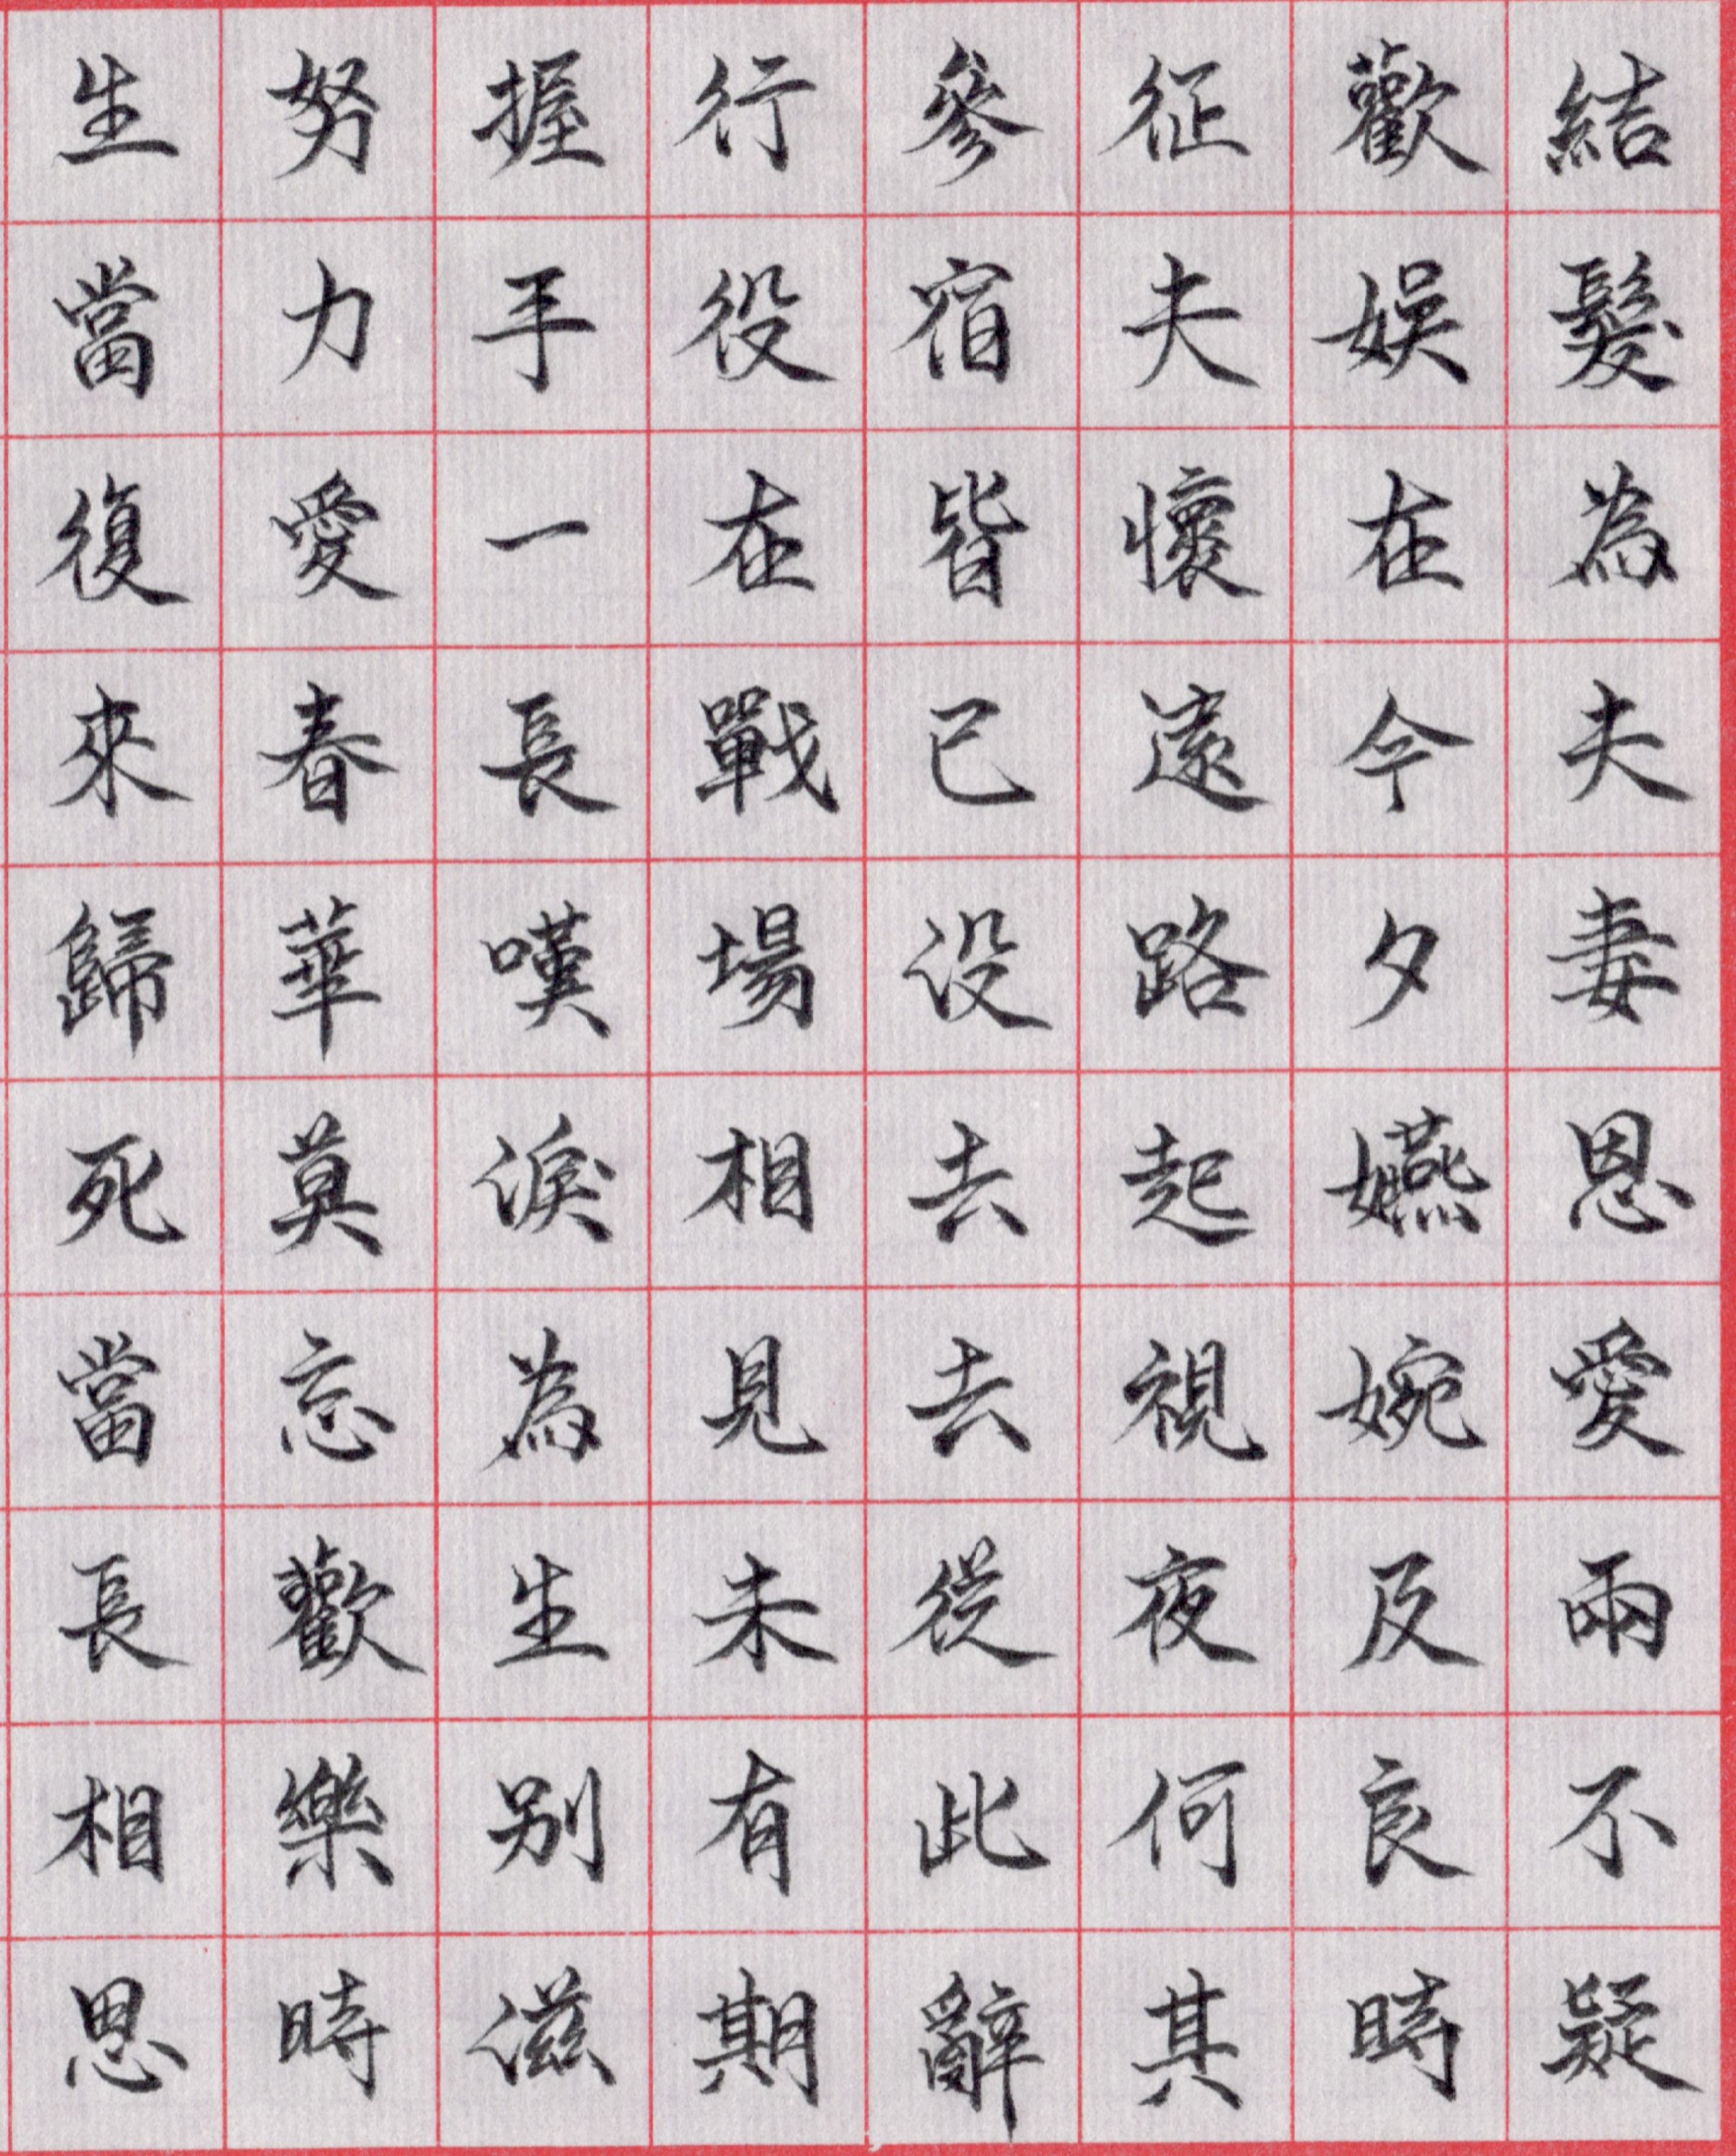 結髮為夫妻恩愛兩不疑
歡娛在今夕嬿婉及良時
征夫懷遠路起視夜何其
參宿皆已没去去從此辭
行役在戰場相見未有期
握手一長嘆淚為生別滋
努力愛春華莫忘歡樂時
生當復來歸死當長相思